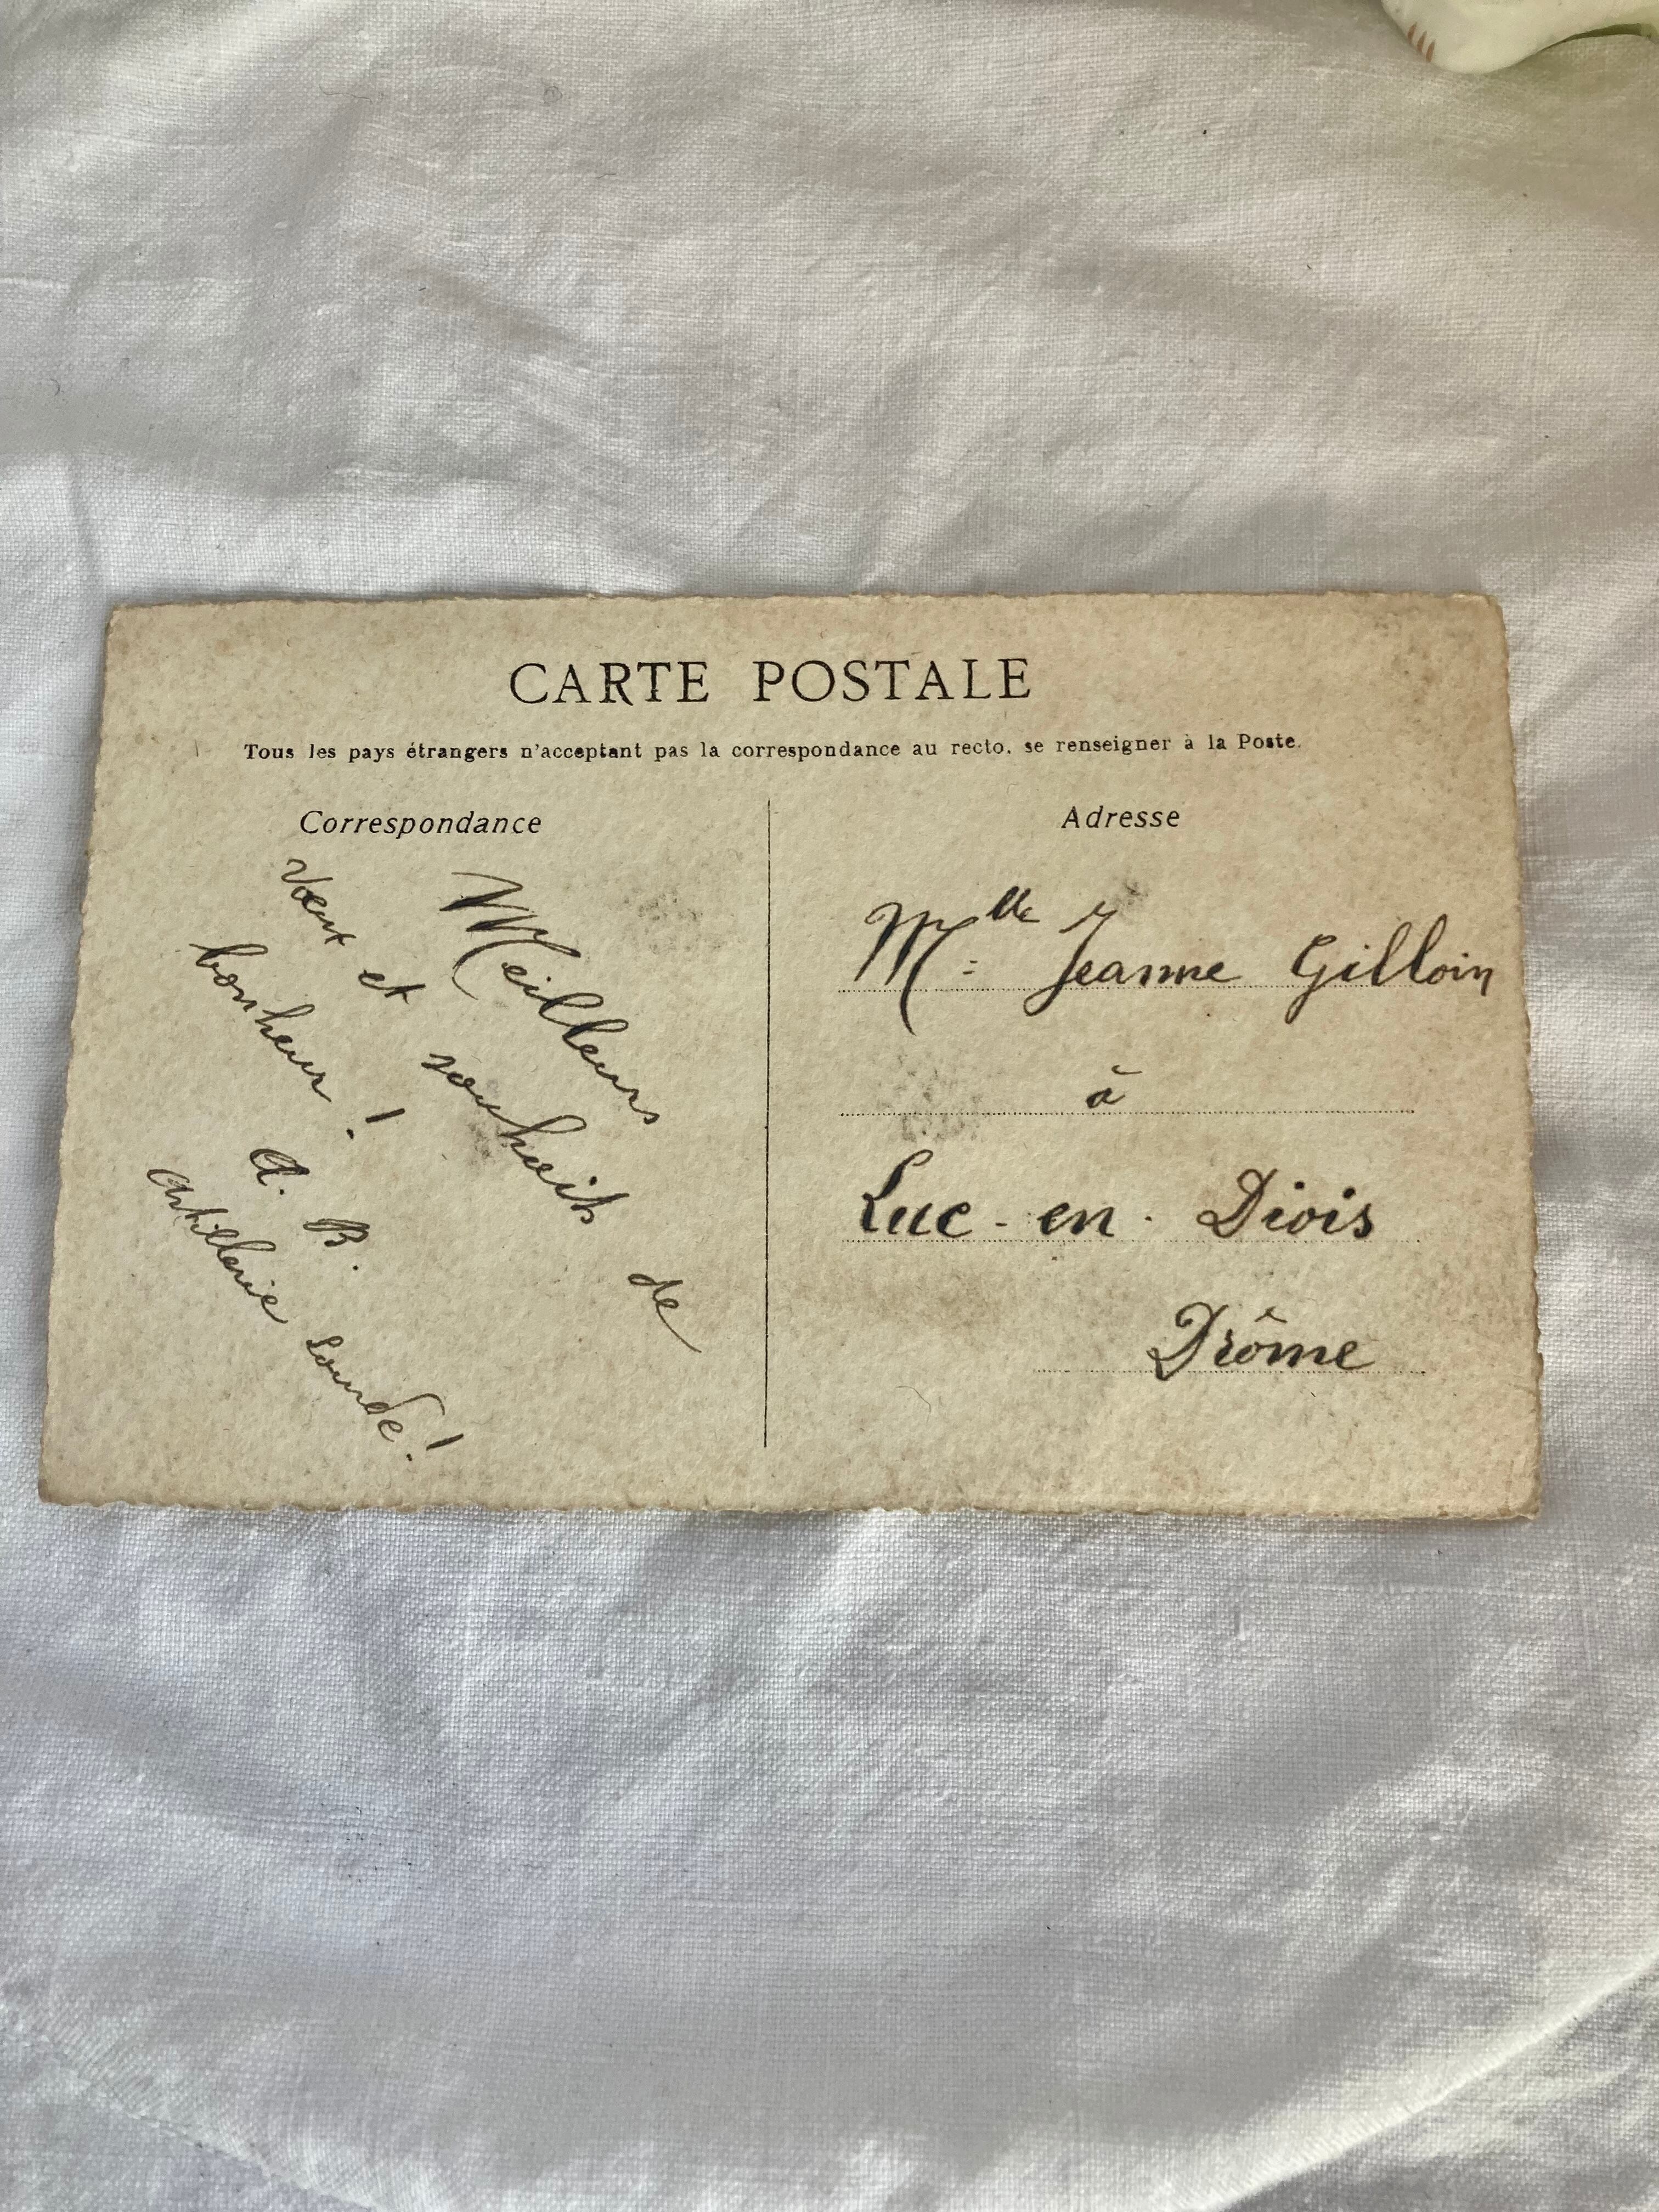 CARTE POSTALE
Tous les pays étrangers n'acceptant pas la correspondance au recto, se renseigner à la Poste.
Correspondance
Meilleurs
vœux et souhaits de
bonheur !
A. B.
Artillerie Lourde !
Adresse
Mlle Jeanne Gilloin
à
Luc-en-Diois
Drôme